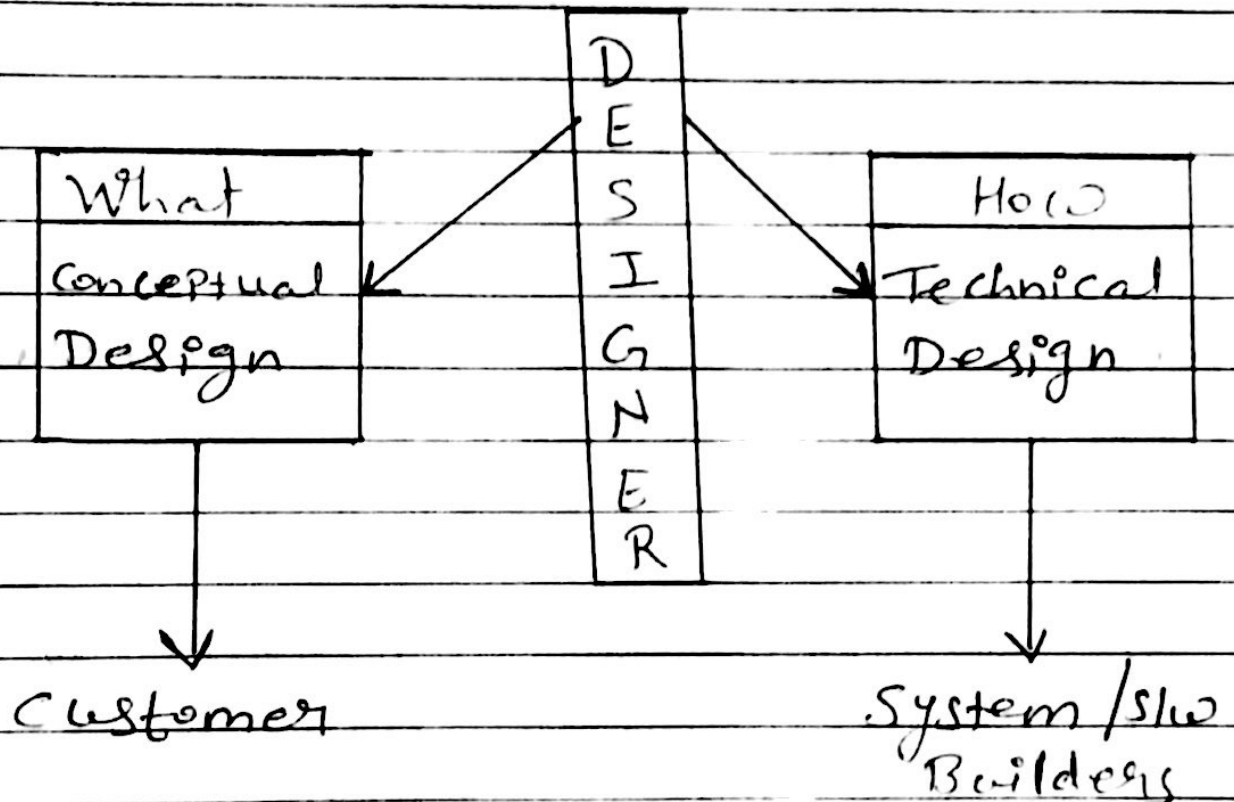 DESIGNER
What
Conceptual
Design
How
Technical
Design
Customer
System/s/w
Builders